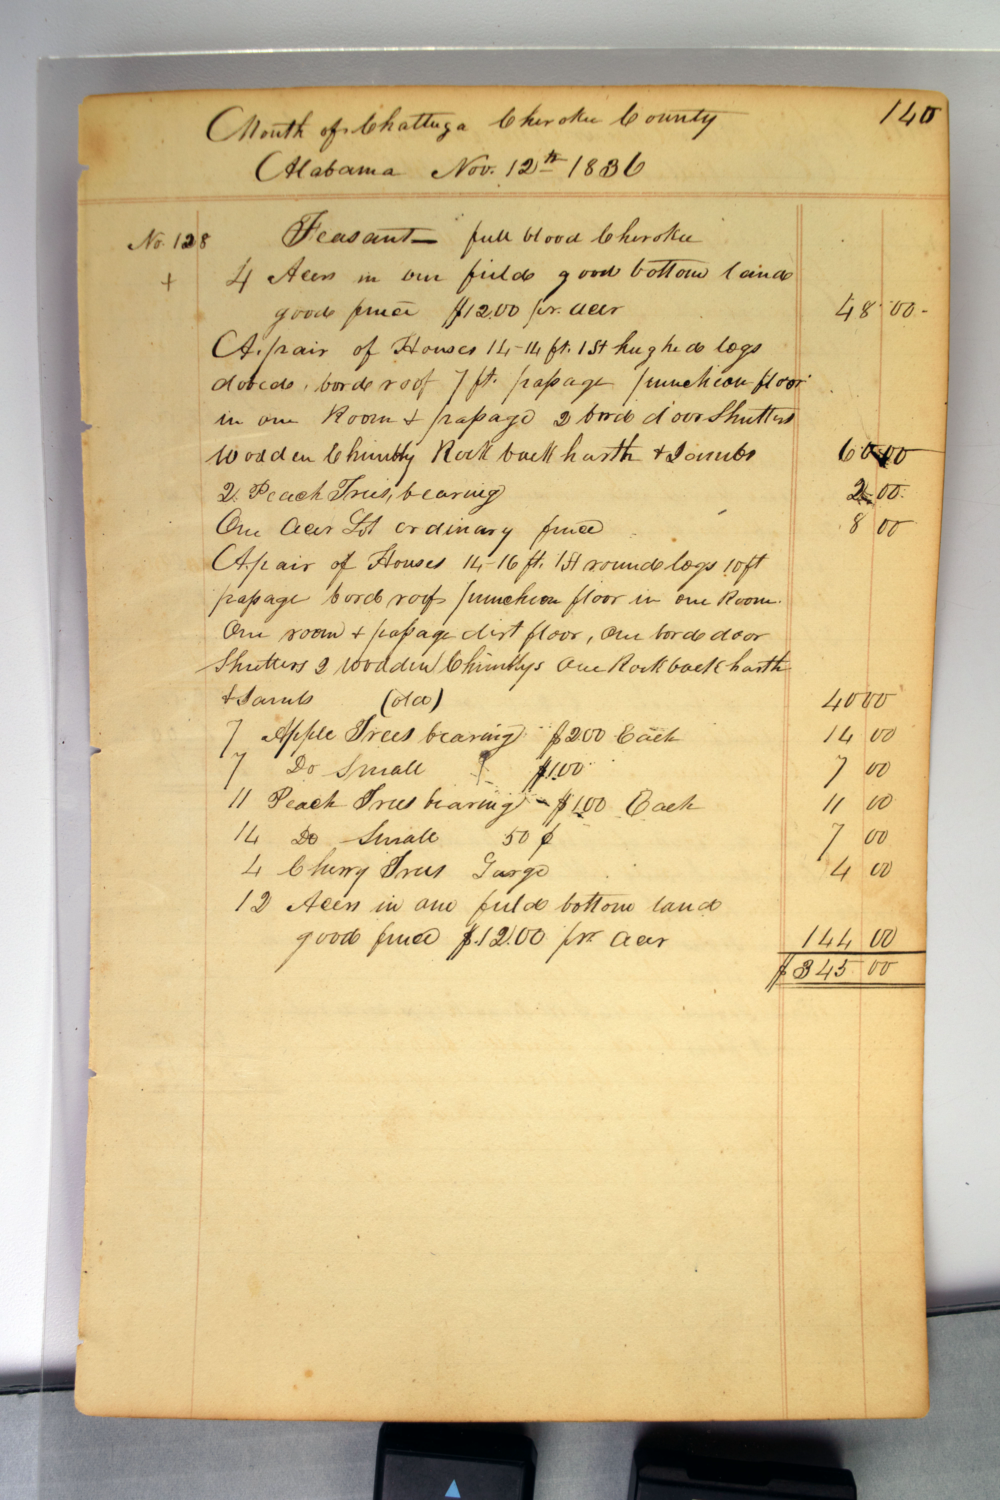 140
Mouth of Chattuga Cherokee County
Alabama Nov. 12th 1836
No. 128 Feasant — full blood Cherokee
+ 4 Acers in one field good bottom land
good fence $12.00 pr. acer 48 00
A pair of Houses 14-14 ft. 1 St hughed logs
dobed, bord roof 7 ft. passage puncheon floor
in one Room & passage 2 bord door Shutters
Wooden Chimbly Rock back harth & Jambs 60 00
2 Peach Trees, bearing 2 00
One Acer Lot ordinary fence 8 00
A pair of Houses 14-16 ft. 1 St round logs 10 ft
passage bord roof puncheon floor in one Room.
One room & passage dirt floor, one bord door
Shutters 2 wooden Chimblys One Rock back harth
& Jambs (old) 40 00
7 Apple Trees bearing $2.00 Each 14 00
7 Do Small $1.00 7 00
11 Peach Trees bearing - $1.00 Each 11 00
14 Do Small 50 ¢ 7 00
4 Cherry Trees Large 4 00
12 Acers in one field bottom land
good fence $12.00 pr. acer 144 00
$345 00